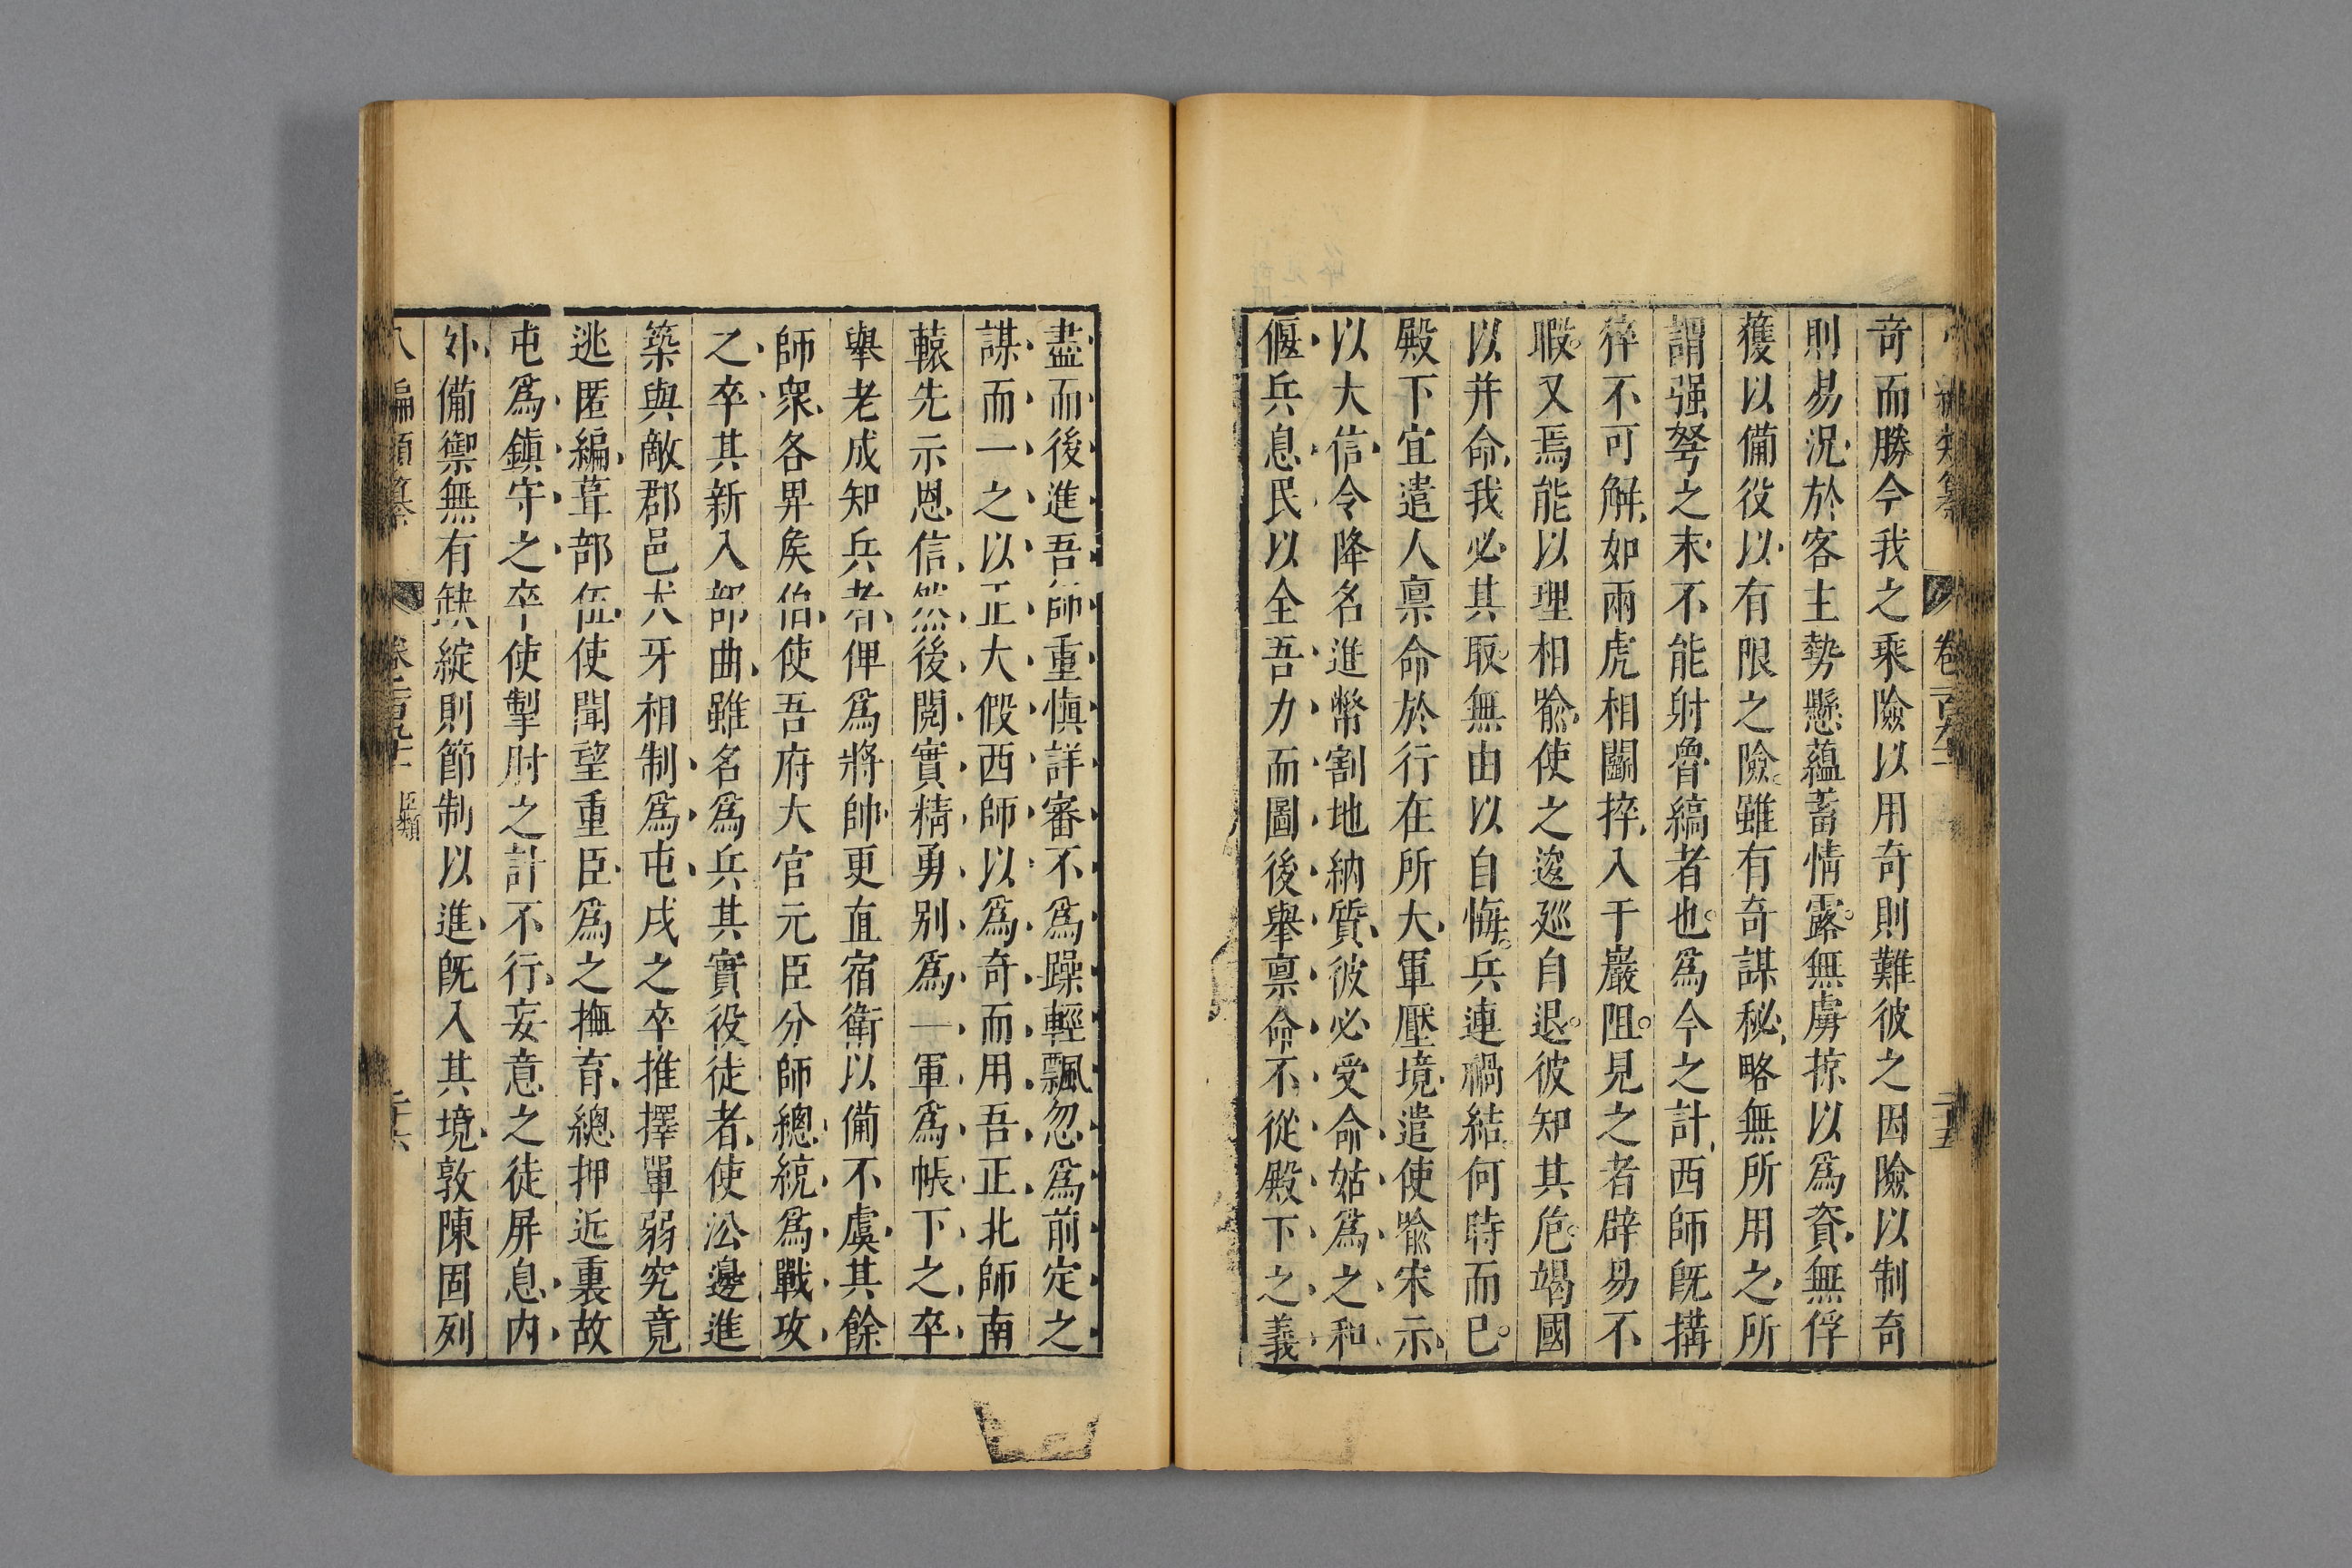 奇而勝今我之乘險以用奇則難彼之因險以制奇
則易況於客主勢懸蘊蓄情露無虜掠以爲資無俘
獲以備役以有限之險雖有奇謀秘略無所用之所
謂强弩之末不能射魯縞者也爲今之計西師旣搆
猝不可解如兩虎相鬭捽入于巖阻見之者辟易不
暇又焉能以理相喻使之逡廵自退彼知其危竭國
以并命我必其取無由以自悔兵連禍結何時而已
殿下宜遣人禀命於行在所大軍壓境遣使喻宋示
以大信令降名進幣割地納質彼必受命姑爲之和
偃兵息民以全吾力而圖後舉禀命不從殿下之義
盡而後進吾師重愼詳審不爲躁輕飄忽爲前定之
謀而一之以正大假西師以爲奇而用吾正北師南
轅先示恩信然後閱實精勇別爲一軍爲帳下之卒
舉老成知兵者俾爲將帥更直宿衛以備不虞其餘
師衆各畀矦伯使吾府大官元臣分師總統爲戰攻
之卒其新入部曲雖名爲兵其實役徒者使㳂邊進
築與敵郡邑犬牙相制爲屯戍之卒推擇單弱究竟
逃匿編葺部伍使聞望重臣爲之撫育總押近裏故
屯爲鎮守之卒使掣肘之計不行妄意之徒屏息内
外備禦無有缺綻則節制以進旣入其境敦陳固列